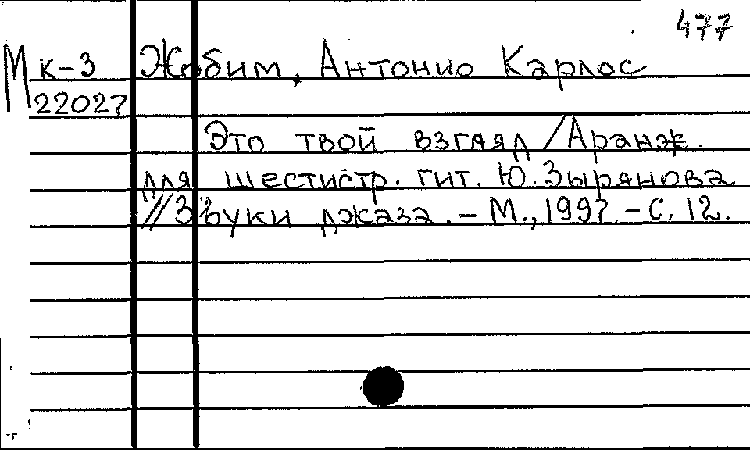 477
М к-3 Жобим, Антонио Карлос
22027
Это твой взгляд / Аранж.
для шестистр. гит. Ю. Зырянова
// Звуки джаза. - М., 1997. - С. 12.